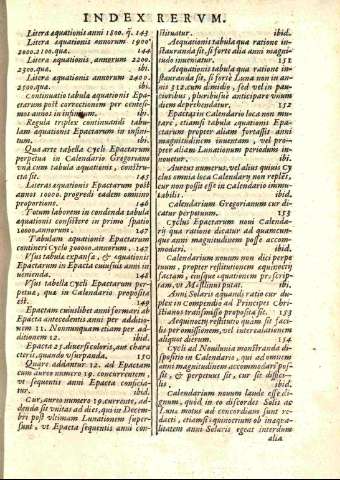 INDEX RERVM.
Litera equationis anni 1800. q. 143
Litera equationis annorum 1900
2000.2100.qua. 144.
Litera equationis, annorum 2200.
2300.qua. ibi.
Litera equationis annorum 2400.
2500.qua. ibi.
Continuatio tabula aquationis Epa-
ctarum post correctionem per centesi-
mos annos in infinitum. ibi.
Regula triplex continuandi tabu-
lam aquationis Epactarum in infini-
tum. ibi.
Qua arte tabella Cycli Epactarum
perpetua in Calendario Gregoriano
vna cum tabula aquationis, constru-
cta sit. 145
Literas aquationis Epactarum post
annos 1000. progredi eadem omnino
proportione. 146
Totum laborem in condenda tabula
aquationis consistere in primo spatio
10000. annorum. 147
Tabulam aquationis Epactarum
contineri Cyclo 300000. annorum. 147
Vsus tabula expansa, & aquationis
Epactarum in Epacta cuiusuis anni in
uenienda. 148
Vsus tabella Cycli Epactarum per-
petua, qua in Calendario proposita
est. 149
Epactam cuiuslibet anni formari ab
Epacta antecedentis anni per additio
nem 11. Nonnunquam etiam per ad-
ditionem 12. ibid.
Epacta 25. diuersicoloris, aut chara
cteris, quando vsurpanda. 150
Quare addantur 12. ad Epactam
cum aureo numero 19. concurrentem,
vt sequentis anni Epacta conficia-
tur. ibid.
Cur, aureo numero 19. currente, ad-
denda sit vnitas ad dies, qui in Decem-
bri post vltimam Lunationem super-
sunt, vt Epacta sequentis anni con-
stituatur. ibid.
Aequationis tabula qua ratione in-
stauranda sit, si forte alia anni magni-
tudo inueniatur. 151
Aequationis tabula qua ratione in-
stauranda sit, si forte Luna non in an-
nis 312. cum dimidio, sed vel in pau-
cioribus, pluribusue anticipare vnum
diem deprehendatur. 152
Epactas in Calendario loca non mu-
tare, etiamsi tabula equationis Epa-
ctarum propter aliam fortassis anni
magnitudinem inuentam, vel pro-
pter aliam Lunationum periodum in-
nouetur. ibi.
Aureus numerus vel alius quiuis Cy
clus omnia loca Calendarij non replet,
cur non possit esse in Calendario immu-
tabilis. ibid.
Calendarium Gregorianum cur di-
catur perpetuum. 153
Cyclus Epactarum noui Calenda-
rij qua ratione dicatur ad quamcun-
que anni magnitudinem posse acco-
modari. ibid.
Calendarium nouum non dici perpe
tuum, propter restitutionem equinoctij
factam, eiusque equationem pr scrip-
tam, vt Mestlinus putat. ibi.
Anni Solaris equandi ratio cur du-
plex in Compendio ad Principes Chri-
stianos transmisso proposita sit. 153
Aequinoctij restitutio quam sit faci-
lis per omissionem, vel intercalationem
aliquot dierum. 154
Cyclus ad Nouilunia monstranda di-
spositio in Calendario, qui ad omnem
anni magnitudinem accommodari pos-
sit, & perpetuus sit, cur sit diffici-
lis. ibid.
Calendarium nouum laude esse di-
gnum, quod in eo discordes Solis ac
Lunæ motus ad concordiam sunt re-
dacti, etiamsi equinoctium ob inequa-
litatem anni Solaris egeat interdum
alia